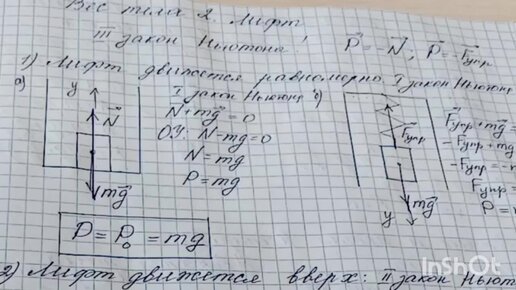 Вес тела 2. Лифт
III закон Ньютона! P⃗ = -N⃗; P⃗ = -F⃗упр
1) Лифт движется равномерно. I закон Ньютона
а) I закон Ньютона б)
y
N⃗
N⃗ + mg⃗ = 0
ОУ: N - mg = 0
N = mg
P = mg
mg⃗
F⃗упр
F⃗упр + mg⃗ =
-Fупр + mg
-Fупр = -m
Fупр =
P =
mg⃗
y
P = P₀ = mg
2) Лифт движется вверх: II закон Ньют
InShot